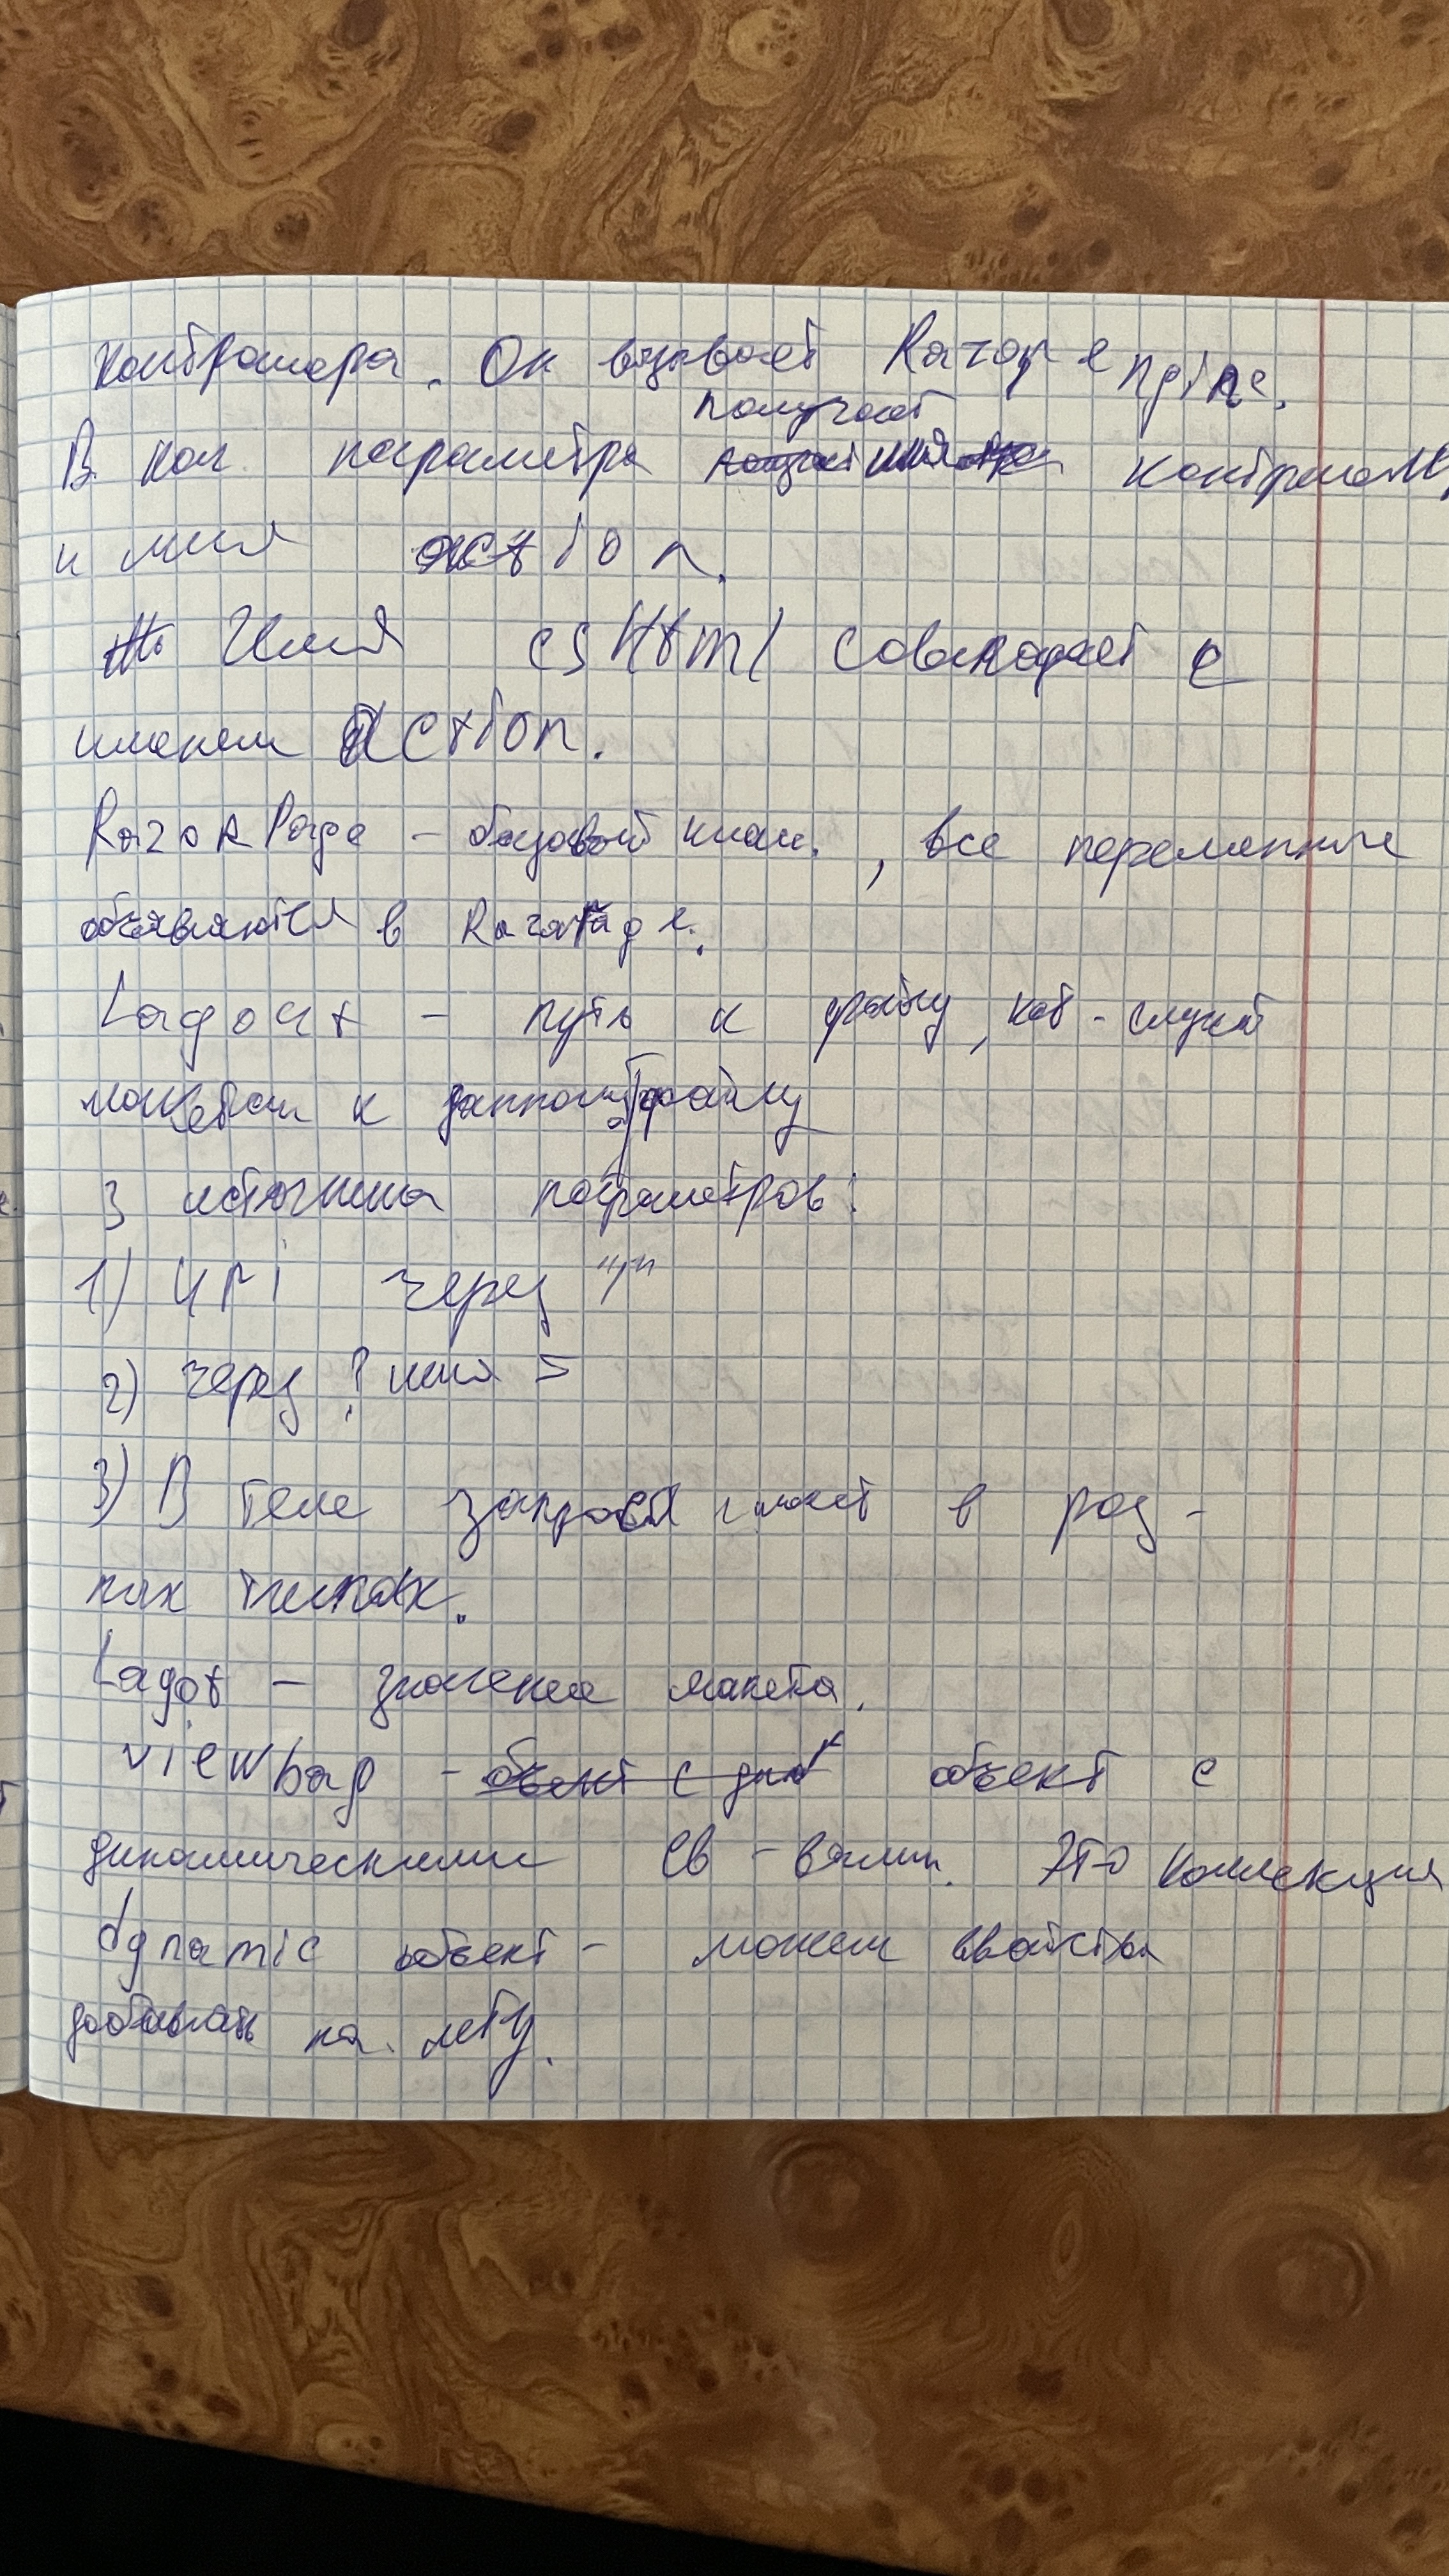 контролера. Он вызывает Razor engine.
получает
В кач. параметра контролер
и имя action.
Имя csHtml совпадает с
именем action.
RazorPage – базовый класс., все переменные
объявляются в RazorPage.
Layout – путь к файлу, кот-служит
макетом к данному файлу
3 источника параметров:
1) Uri через "/"
2) через ? имя =
3) В теле запроса может в раз-
ных типах.
Layot – значение макета.
viewbag – объект с дин объект с
динамическими св-вами. Это коллекция
dynamic объект – можем свойства
добавлять на лету.